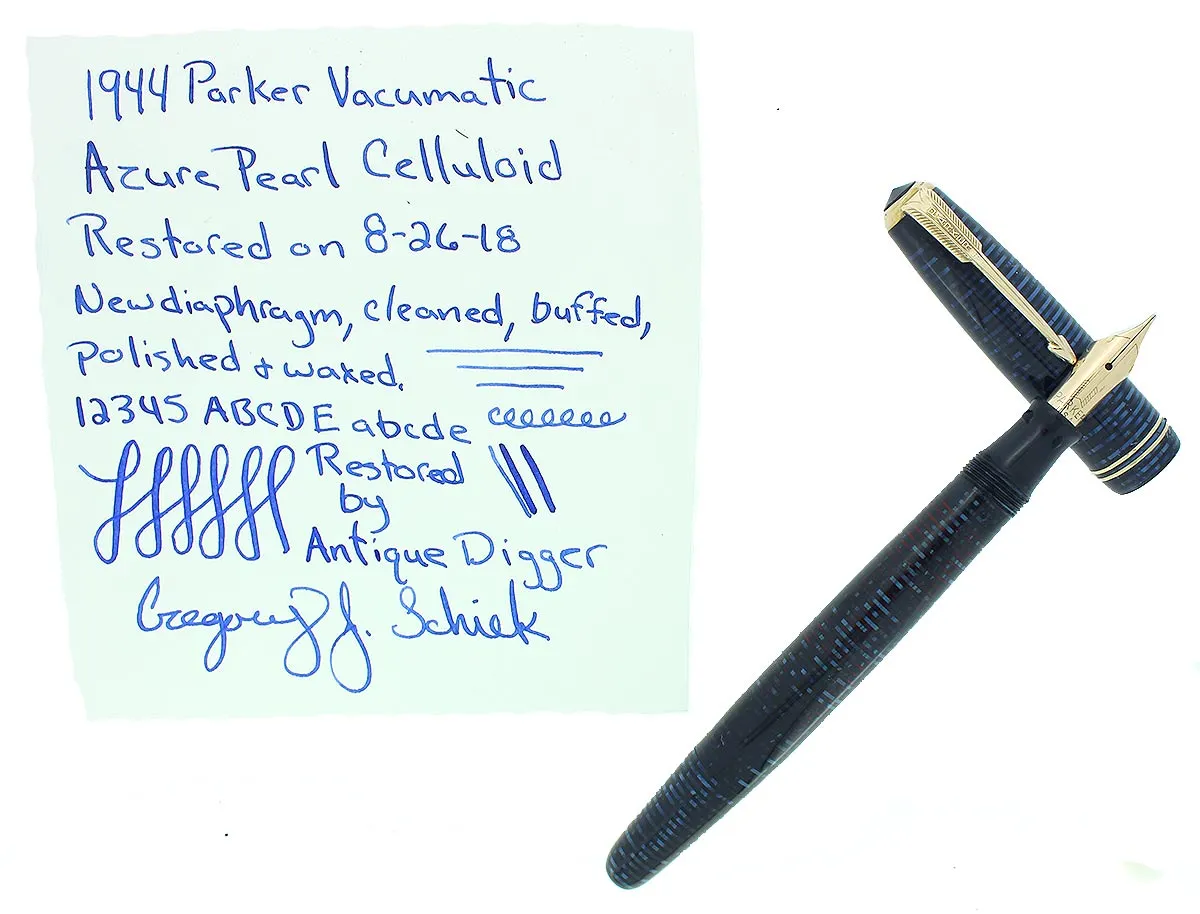 1944 Parker Vacumatic
Azure Pearl Celluloid
Restored on 8-26-18
New diaphragm, cleaned, buffed,
polished & waxed.
12345 ABCDE abcde
Restored
by
Antique Digger
Gregory J. Schiek
PARKER